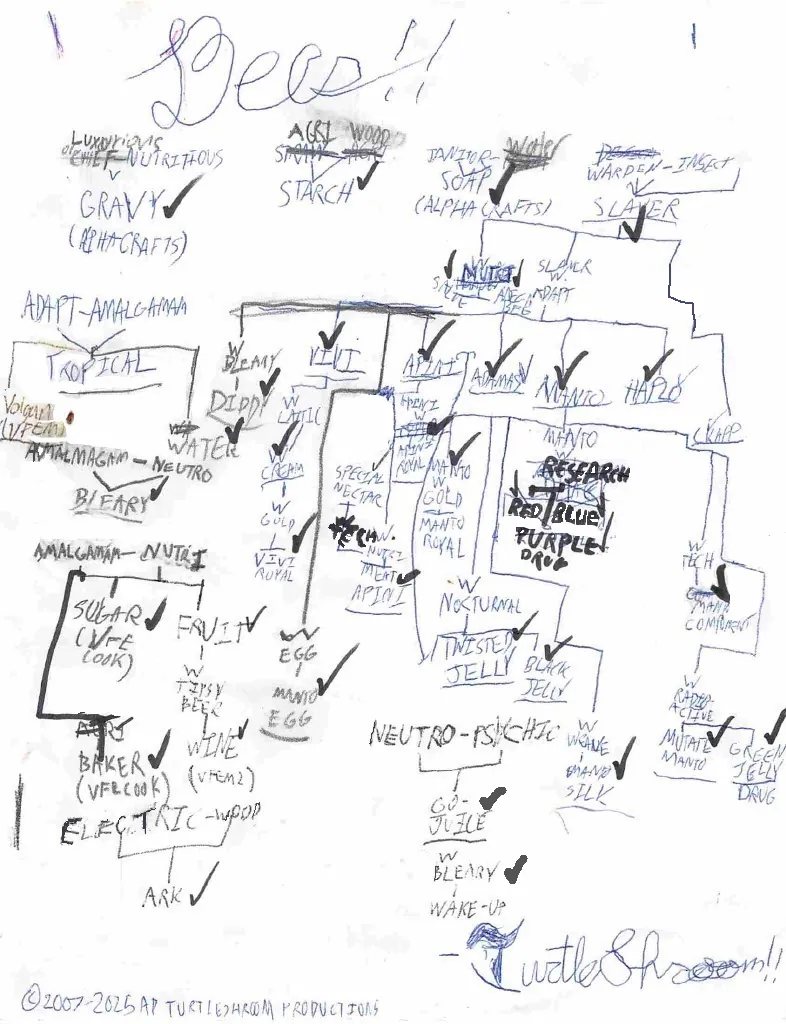 Bees!!
LUXURIOUS
or CHEF-NUTRITIOUS
W
GRAVY
(ALPHACRAFTS)
AGRI WOOD
STARCH
JANITOR- Water
SOAP
(ALPHA CRAFTS)
WARDEN-INSECT
SLAYER
W
NUTRI
SLAYER
W.
ADAPT
ADAPT-AMALGAMAM
TROPICAL
Volcan
(VFEM)
WATER
AMALMAGAM-NEUTRO
BLEARY
W
BLEARY
DIPD
VIVI
W
LATIC
W
CREAM
W
GOLD
VIVI
ROYAL
APINI
APINI
APINI
ROYAL
ADAMAS
MANTO
HAPLO
CRAPP
SPECIAL
NECTAR
W.
NUTRI
MEAT
APINI
MANTO
W
GOLD
MANTO
ROYAL
MANTO
W
RESEARCH
RED/BLUE
PURPLE
DRUG
W
TECH
MANTO
COMPONENT
AMALGAMAM-NUTRI
SUGAR
(VFE
COOK)
FRUIT
W
TIPSY
BEER
WINE
(VFEM2)
AGRI
BAKER
(VFECOOK)
W
EGG
MANTO
EGG
W
NOCTURNAL
TWISTED
JELLY
BLACK
JELLY
W
RADIO-
ACTIVE
MUTATE
MANTO
GREEN
JELLY
DRUG
NEUTRO-PSYCHIC
GO-
JUICE
W
BLEARY
WAKE-UP
W
MANTO
SILK
ELECTRIC-WOOD
ARK
TurtleShroom!!
©2007-2025 AD TURTLESHROOM PRODUCTIONS